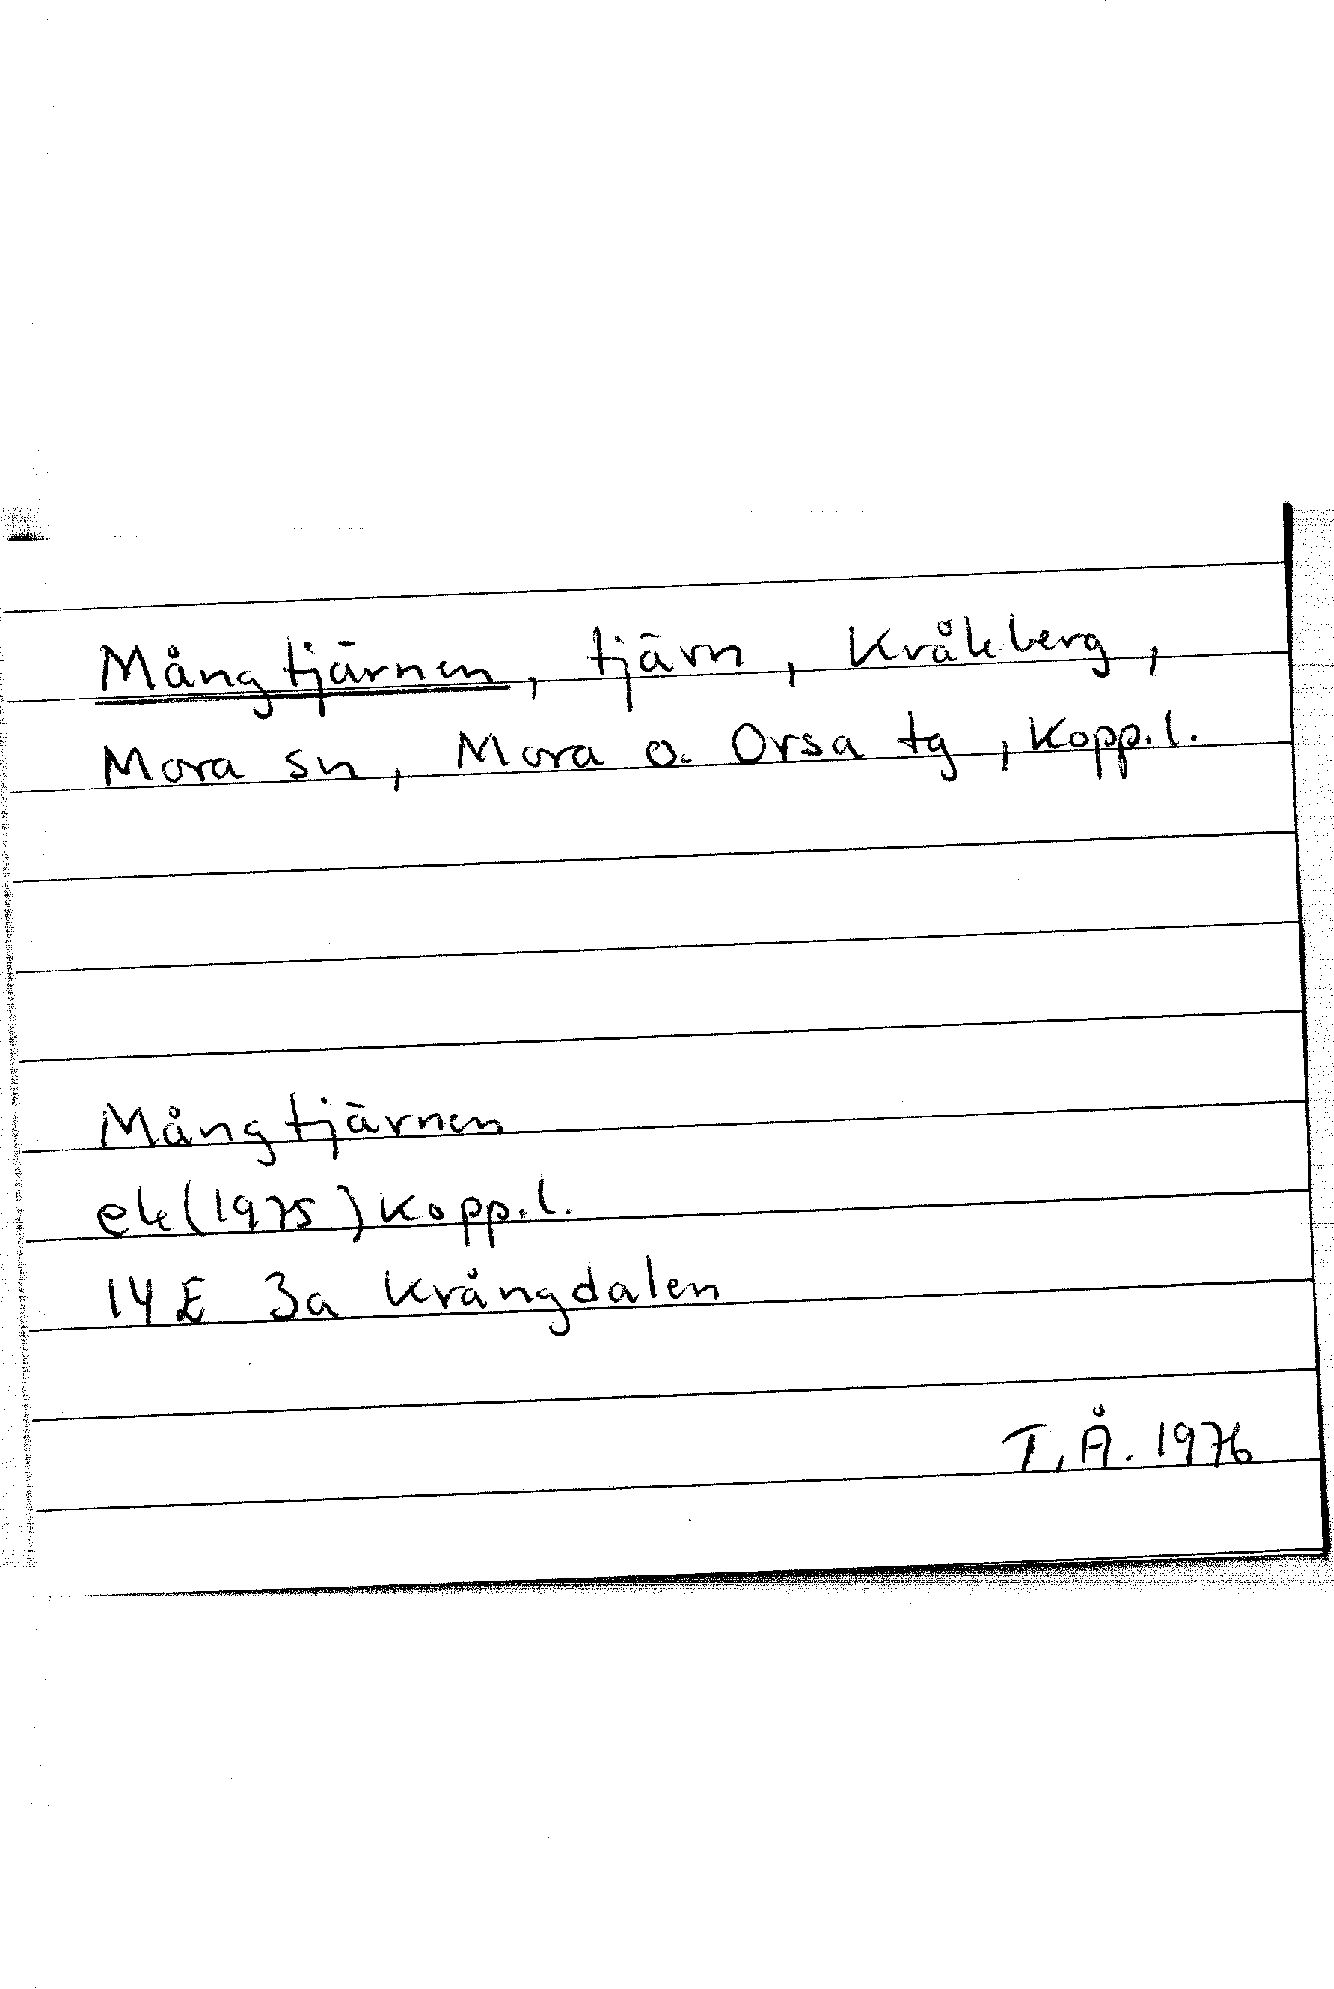 Mångtjärnen, tjärn, Kråkberg,
Mora sn, Mora o. Orsa tg, Kopp.l.
Mångtjärnen
ek(1975) Kopp.l.
14E 3a Krångdalen
T.Å. 1976